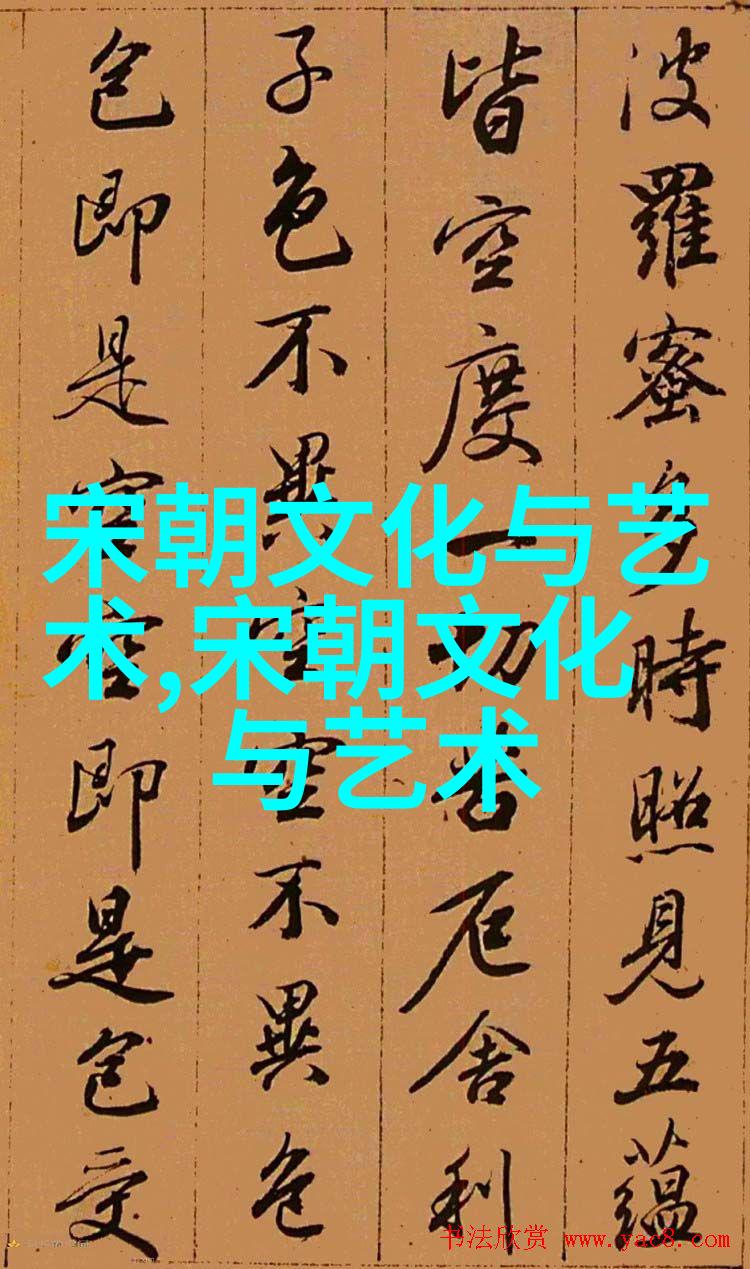 波羅蜜多時照見五蘊
皆空度一切苦厄舍利
子色不異空空不異色
色即是空空即是色受
宋朝文化与艺
术,宋朝文化
与艺术
书法欣赏 www.yac8.com